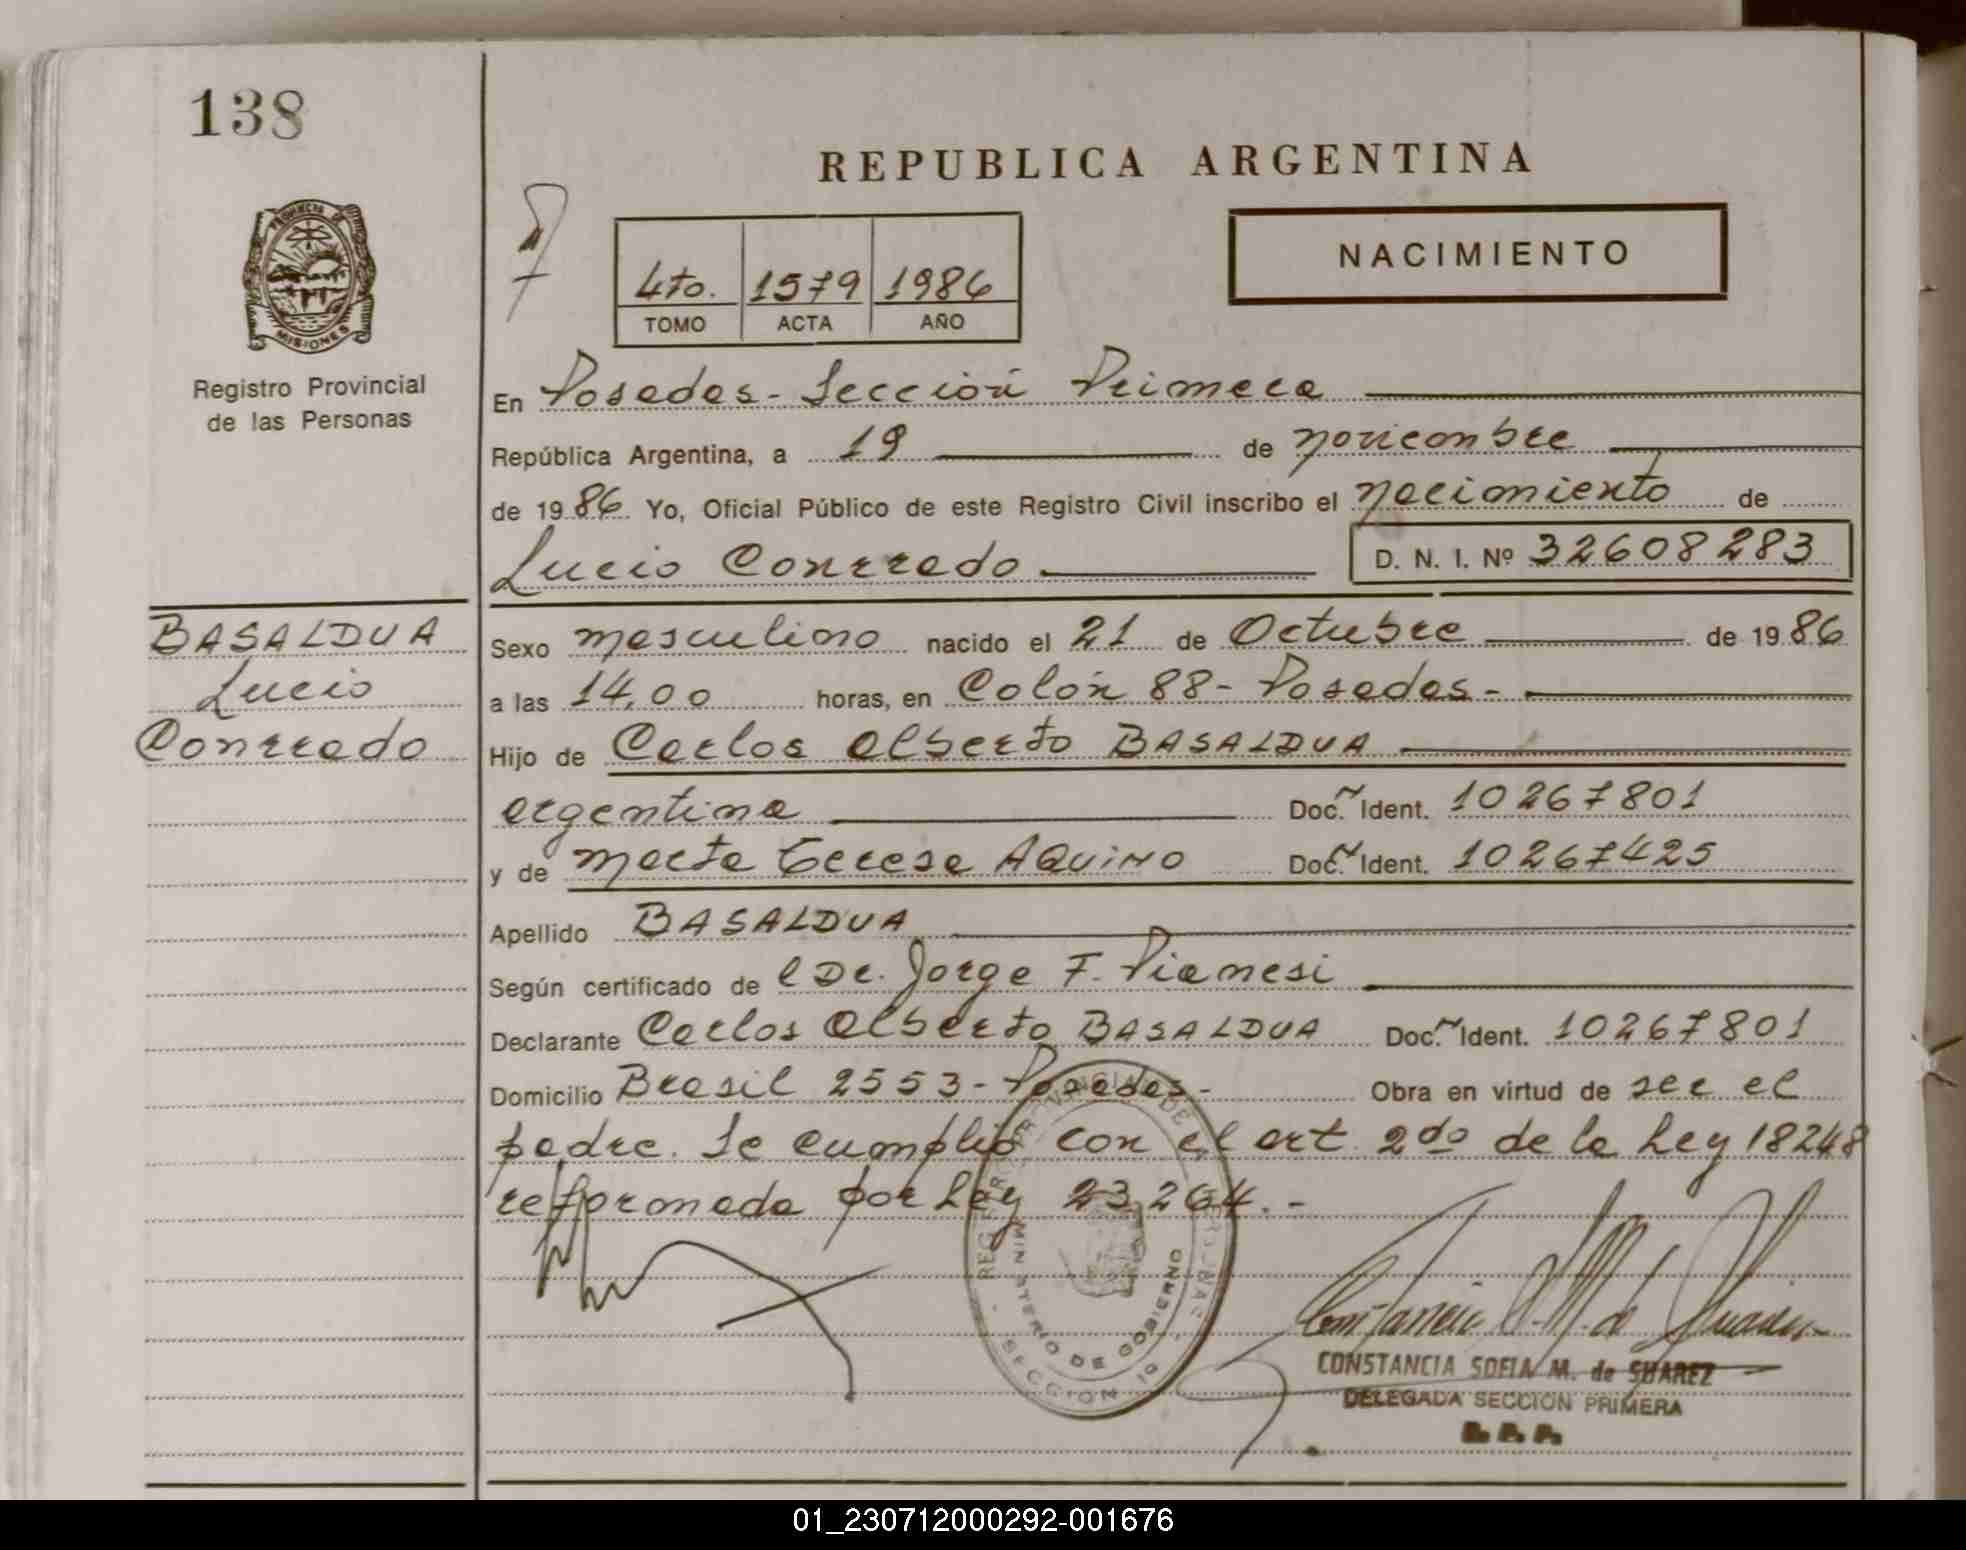 138
REPUBLICA ARGENTINA
NACIMIENTO
4to. 1579 1986
TOMO ACTA AÑO
PROVINCIA DE MISIONES
Registro Provincial
de las Personas
En Posadas - Sección Primera
República Argentina, a 19 de noviembre
de 1986 Yo, Oficial Público de este Registro Civil inscribo el nacimiento de
Lucio Conrrado D. N. I. Nº 32608283
BASALDUA
Lucio
Conrrado
Sexo masculino nacido el 21 de Octubre de 1986
a las 14,00 horas, en Colón 88 - Posadas -
Hijo de Carlos Alberto BASALDUA
argentina Doc. Ident. 10267801
y de Marta Teresa AQUINO Doc. Ident. 10267425
Apellido BASALDUA
Según certificado de l Dr. Jorge F. Pianesi
Declarante Carlos Alberto BASALDUA Doc. Ident. 10267801
Domicilio Brasil 2553 - Posadas - Obra en virtud de ser el
padre. Se cumplió con el art. 2do de la Ley 18248
reformada por Ley 23.264. -
MINISTERIO DE GOBIERNO
SECCION 1º
Constancia S. M. de Suarez
CONSTANCIA SOFIA M. de SUAREZ
DELEGADA SECCION PRIMERA
R. P. P.
01_230712000292-001676